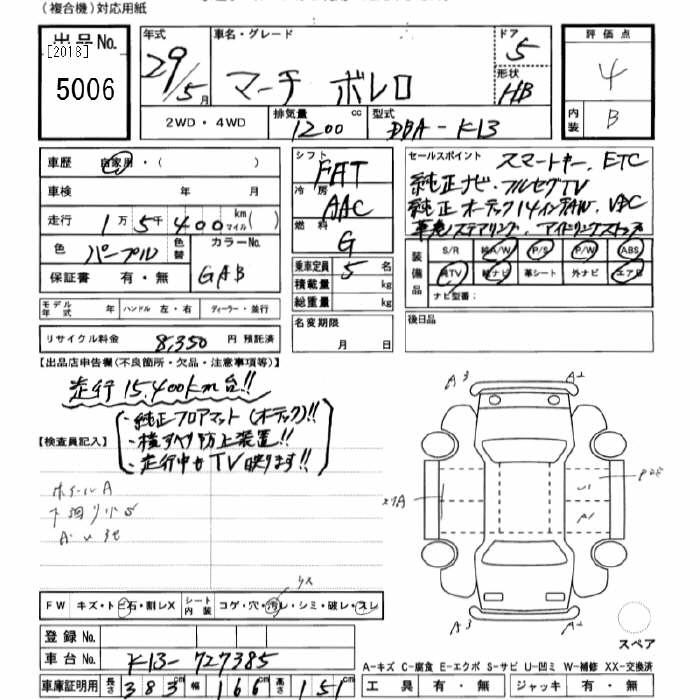 (複合機)対応用紙
出品No.
[2018]
5006
年式
29/5月
車名・グレード
マーチ ボレロ
ドア
5
形状
HB
2WD・4WD
排気量
1200 cc
型式
DBA-K13
評価点
4
内装
B
車歴 自家用・( )
車検 年 月
走行 1万5千400 km マイル ( )
色 パープル
色替
カラーNo.
GAB
保証書 有・無
モデル年式 ハンドル 左・右 ディーラー・並行
リサイクル料金 8,350 円 預託済
シフト
FAT
冷房
AAC
燃料
G
乗車定員 5 名
積載量 kg
総重量 kg
名変期限
月 日
セールスポイント スマートキー、ETC
純正ナビ・フルセグTV
純正オーテック14インチAW、VDC
革巻ステアリング、アイドリングストップ
装備品
S/R 純A/W P/S P/W ABS
純TV 純ナビ 革シート 外ナビ エアB
ナビ型番:
後日品
【出品店申告欄(不良箇所・欠品・注意事項等)】
走行15,400km台!!
・純正フロアマット(オーテック)!!
・横すべり防止装置!!
・走行中もTV映ります!!
【検査員記入】
ホイールA
下廻り小サ
A3
A2
A1
A3
A2
スペア
FW キズ・トビ石・割レX
シート内装 コゲ・穴・汚レ・シミ・破レ・スレ
登録No.
車台No. K13-727385
車庫証明用 長さ 383 cm 幅 166 cm 高さ 151 cm
A-キズ C-腐食 E-エクボ S-サビ U-凹ミ W-補修 XX-交換済
工具 有・無 ジャッキ 有・無